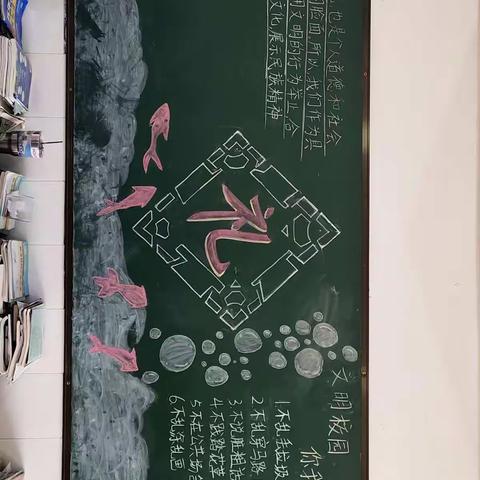 也是个人道德和社会
脸面,所以,我们作为具
文明的行为举止,合
文化,展示民族精神
礼
文明校园
你我
1.不乱丢垃圾
2.不乱穿马路
3.不说脏粗话
4.不践踏花草
5.不在公共场合
6.不乱涂乱画